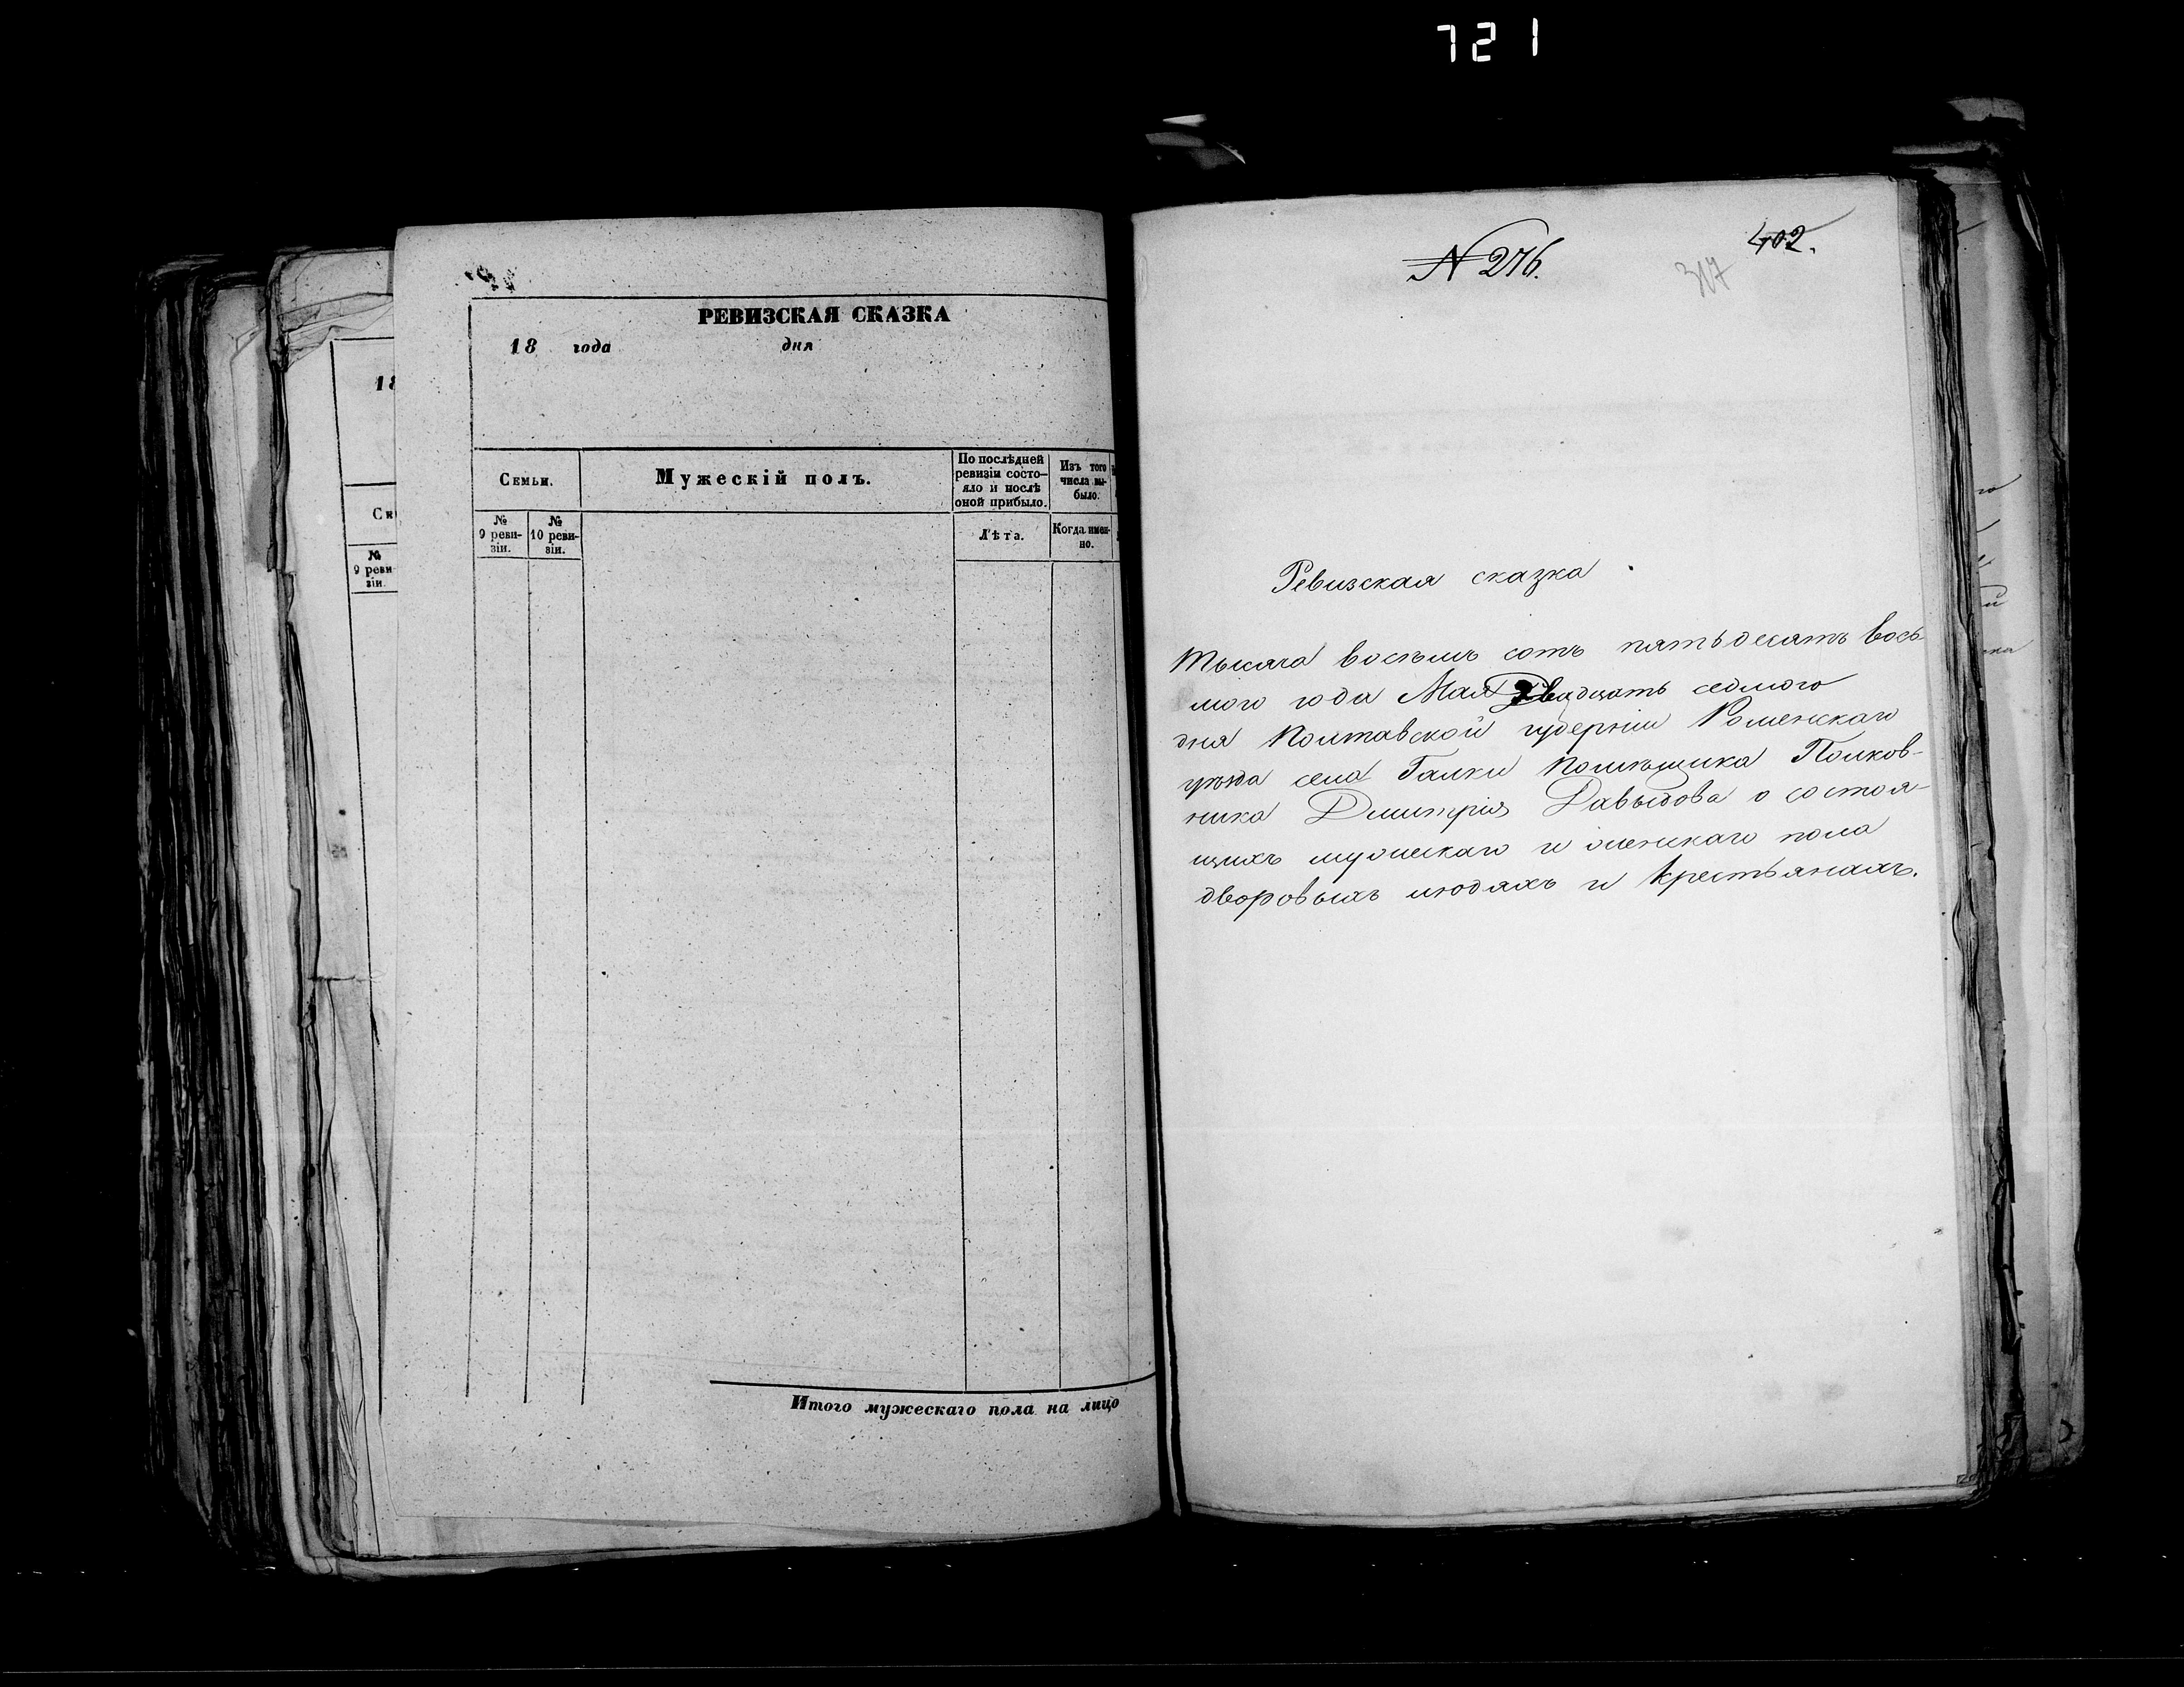 721
РЕВИЗСКАЯ СКАЗКА
18 года дня
Семьи.
Мужескій полъ.
По послѣдней
ревизіи состо-
яло и послѣ
оной прибыло.
Изъ того
числа вы-
было.
№
9 реви-
зіи.
№
10 реви-
зіи.
Лѣта.
Когда имен-
но.
Итого мужескаго пола на лицо
18
№
9 реви
зіи.
N 276.
402.
317
Ревизская сказка
Тысяча восемь сотъ пятьдесятъ вось-
мого года Мая Двадцать седмого
дня Полтавской губерніи Роменскаго
уѣзда села Галки Помѣщика Полков-
ника Дмитрія Давыдова о состоя-
щихъ мужескаго и женскаго пола
дворовыхъ людяхъ и крестьянахъ.